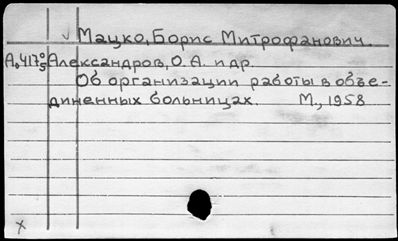 √ Мацко, Борис Митрофанович.
А₀417⁰₅ Александров, О. А. и др.
Об организации работы в объе-
диненных больницах. М., 1958
x